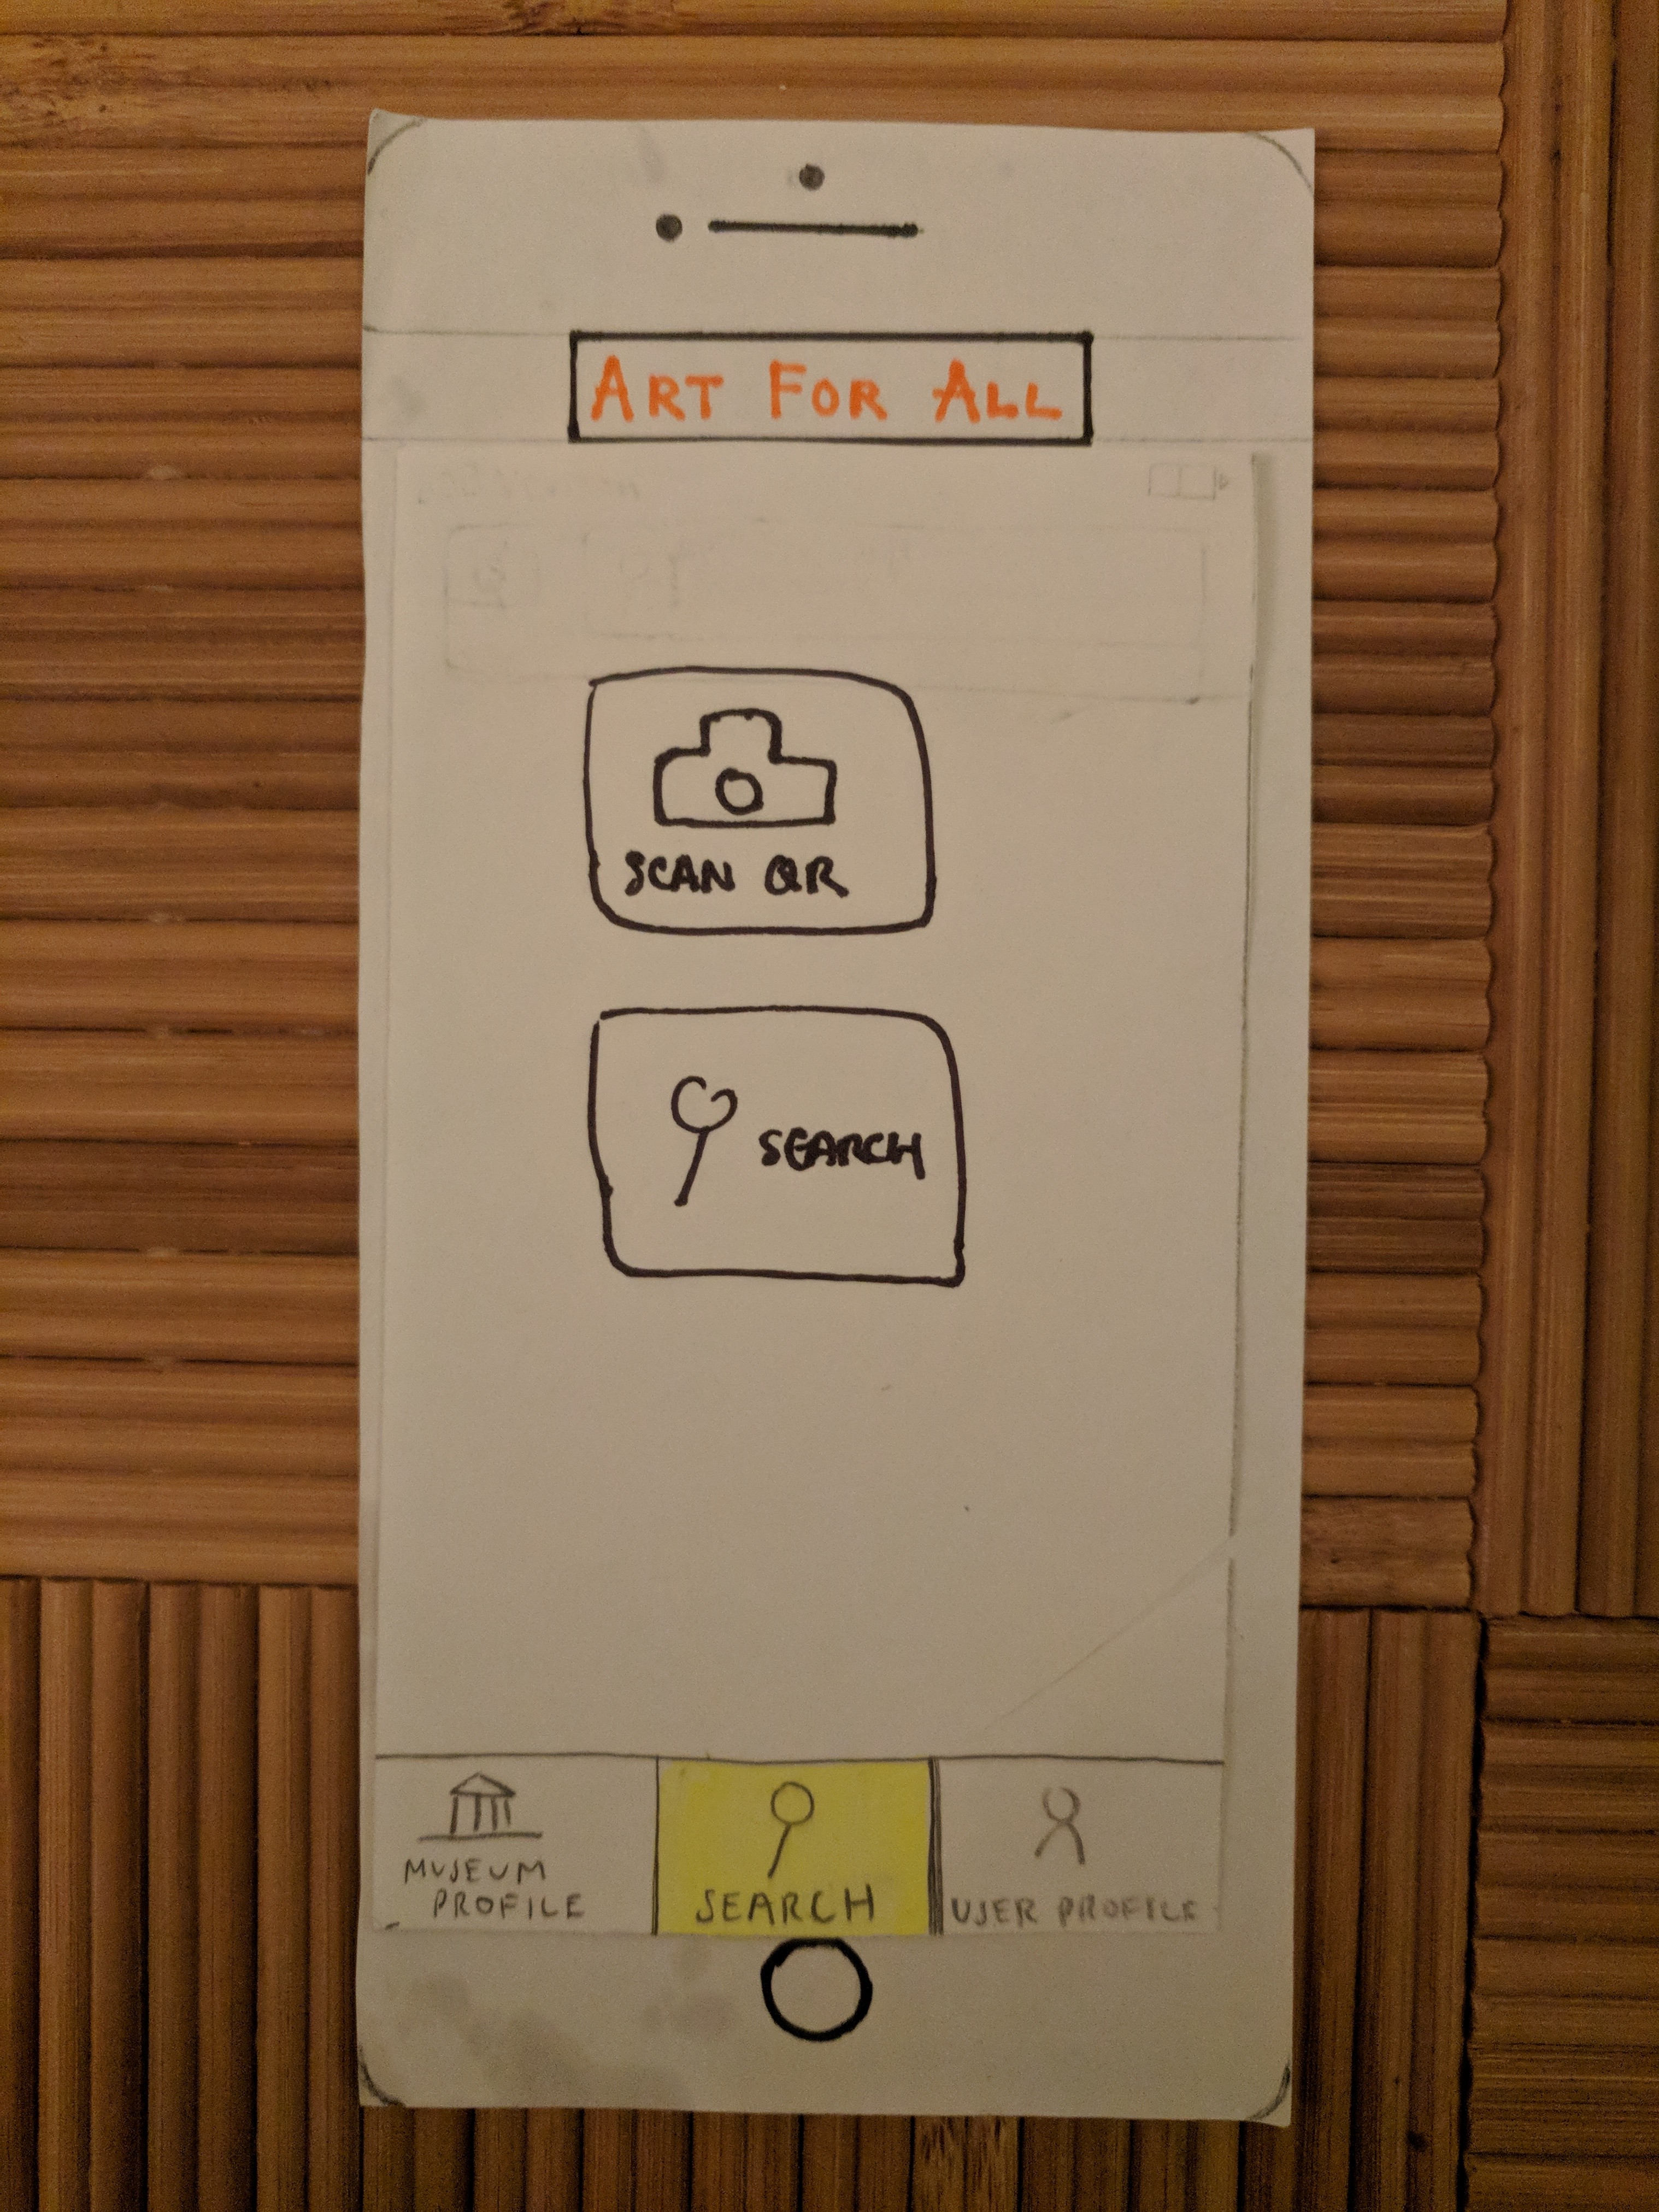 ART FOR ALL
SCAN QR
SEARCH
MUSEUM
PROFILE
SEARCH
USER PROFILE